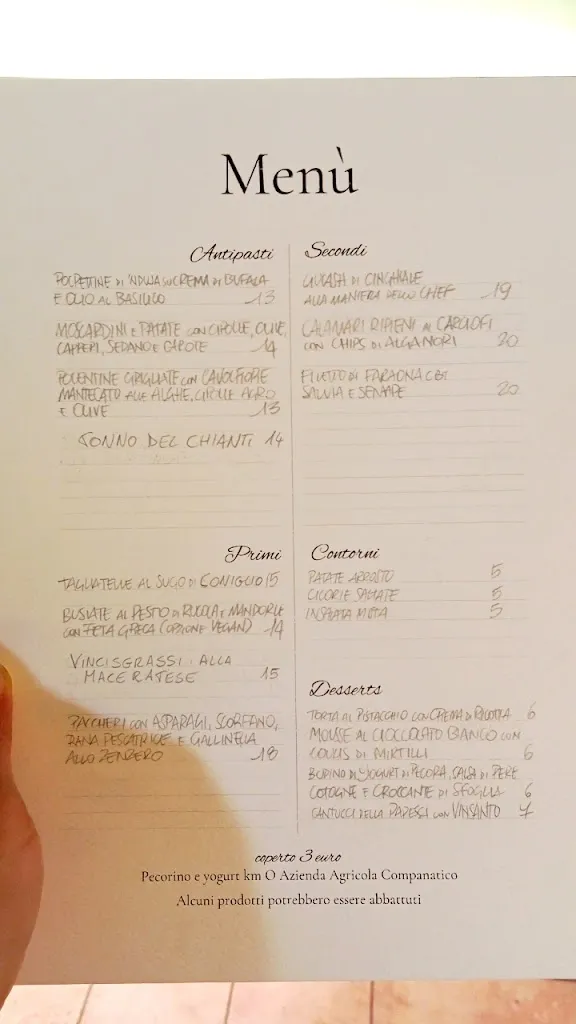 Menù
Antipasti
POLPETTINE DI 'NDUJA SU CREMA DI BUFALA
E OLIO AL BASILICO 13
MOSCARDINI E PATATE CON CIPOLLE, OLIVE,
CAPPERI, SEDANO E CAROTE 14
POLENTINE GRIGLIATE CON CAVOLFIORE
MANTECATO ALLE ALGHE, CIPOLLE AGRO
E OLIVE 13
TONNO DEL CHIANTI 14
Primi
TAGLIATELLE AL SUGO DI CONIGLIO 15
BUSIATE AL PESTO DI RUCOLA E MANDORLE
CON FETA GRECA (OPZIONE VEGAN) 14
VINCISGRASSI ALLA
MACERATESE 15
PACCHERI CON ASPARAGI, SCORFANO,
RANA PESCATRICE E GALLINELLA
ALLO ZENZERO 18
Secondi
GULASH DI CINGHIALE
ALLA MANIERA DELLO CHEF 19
CALAMARI RIPIENI AI CARCIOFI
CON CHIPS DI ALGA NORI 20
FILETTO DI FARAONA CBT
SALVIA E SENAPE 20
Contorni
PATATE ARROSTO 5
CICORIE SALTATE 5
INSALATA MISTA 5
Desserts
TORTA AL PISTACCHIO CON CREMA DI RICOTTA 6
MOUSSE AL CIOCCOLATO BIANCO CON
COULIS DI MIRTILLI 6
BUDINO DI YOGURT DI PECORA, SALSA DI PERE
COTOGNE E CROCCANTE DI SFOGLIA 6
CANTUCCI DELLA PAPESSA CON VINSANTO 7
coperto 3 euro
Pecorino e yogurt km O Azienda Agricola Companatico
Alcuni prodotti potrebbero essere abbattuti